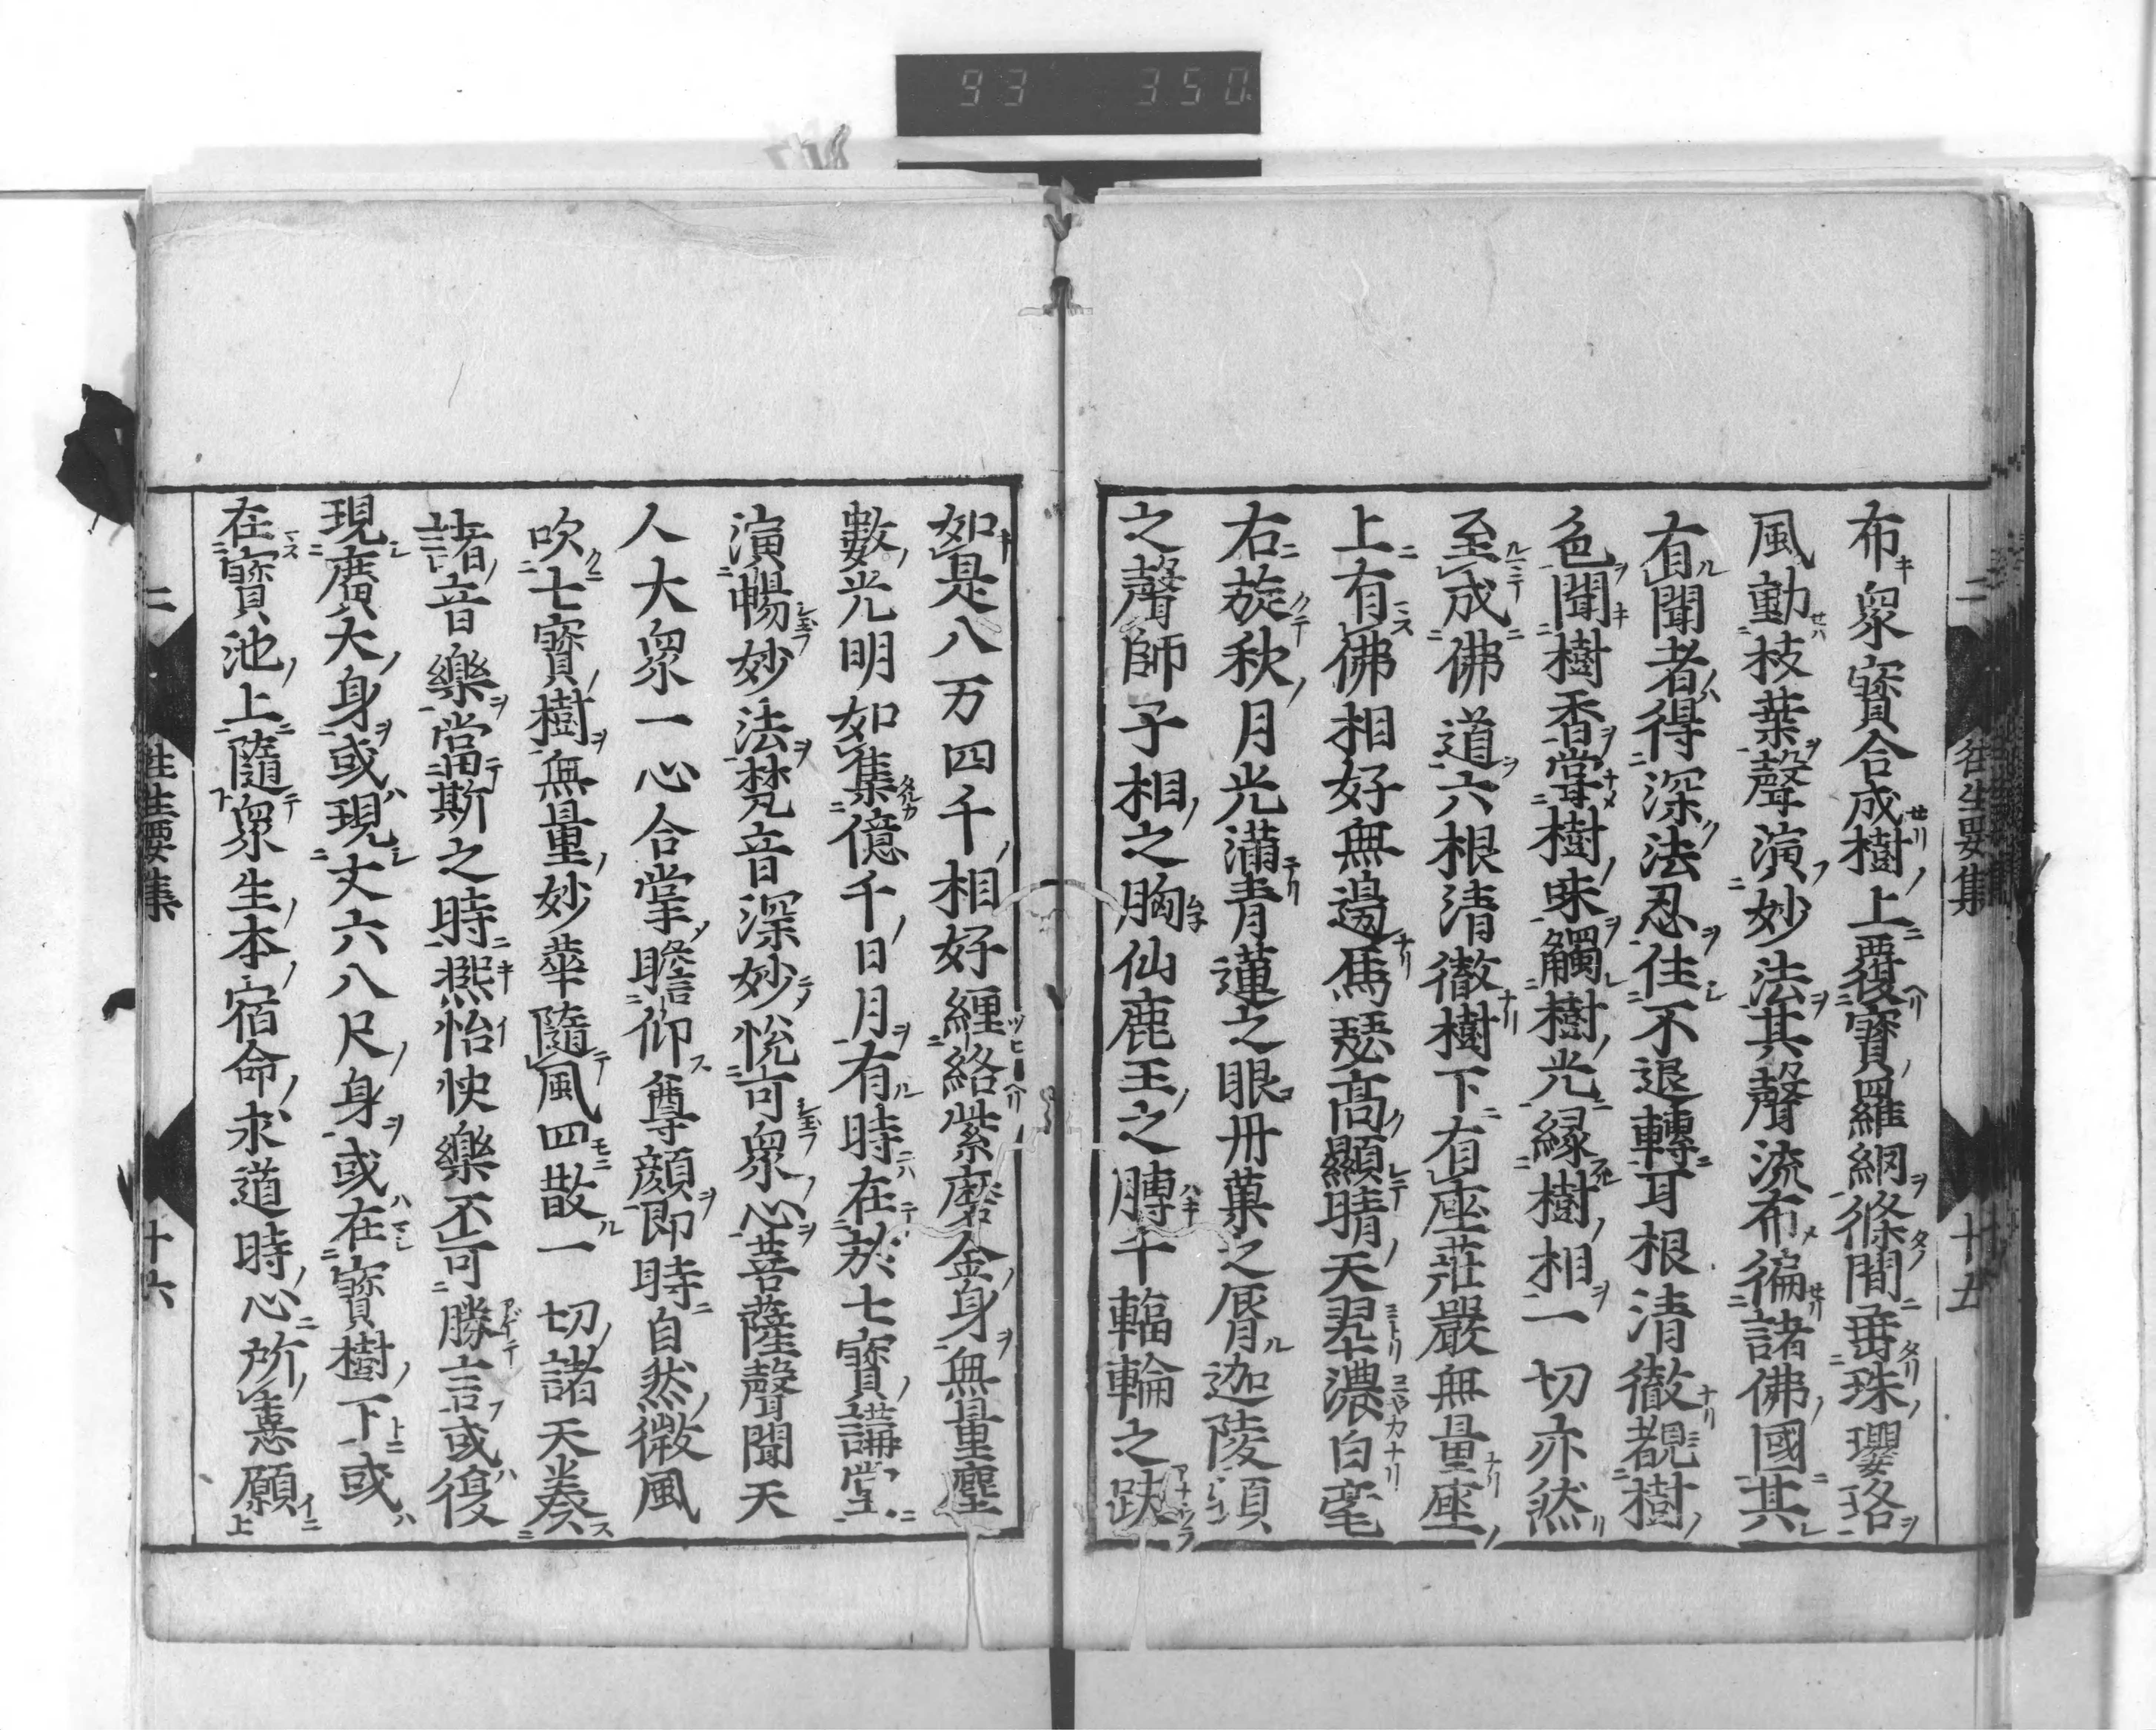 93 350
二 往生要集 十五
布衆寳合成樹上覆寳羅網條間垂珠瓔珞
風動枝葉聲演妙法其聲流布徧諸佛國其
有聞者得深法忍住不退轉耳根清徹覩樹
色聞樹香甞樹味觸樹光縁樹相一切亦然
至成佛道六根清徹樹下有座莊嚴無量座
上有佛相好無邊烏瑟高顯晴天翠濃白毫
右旋秋月光滿青蓮之眼丹菓之脣迦陵頻
之聲師子相之胸仙鹿王之膊千輻輪之趺
如是八万四千相好纒絡紫磨金身無量塵
數光明如集億千日月有時在於七寳講堂
演暢妙法梵音深妙悅可衆心菩薩聲聞天
人大衆一心合掌瞻仰尊顔即時自然微風
吹七寳樹無量妙華隨風四散一切諸天奏
諸音樂當斯之時熈怡快樂不可勝言或復
現廣大身或現丈六八尺身或在寳樹下或
在寳池上隨衆生本宿命求道時心所憙願
二 往生要集 十六